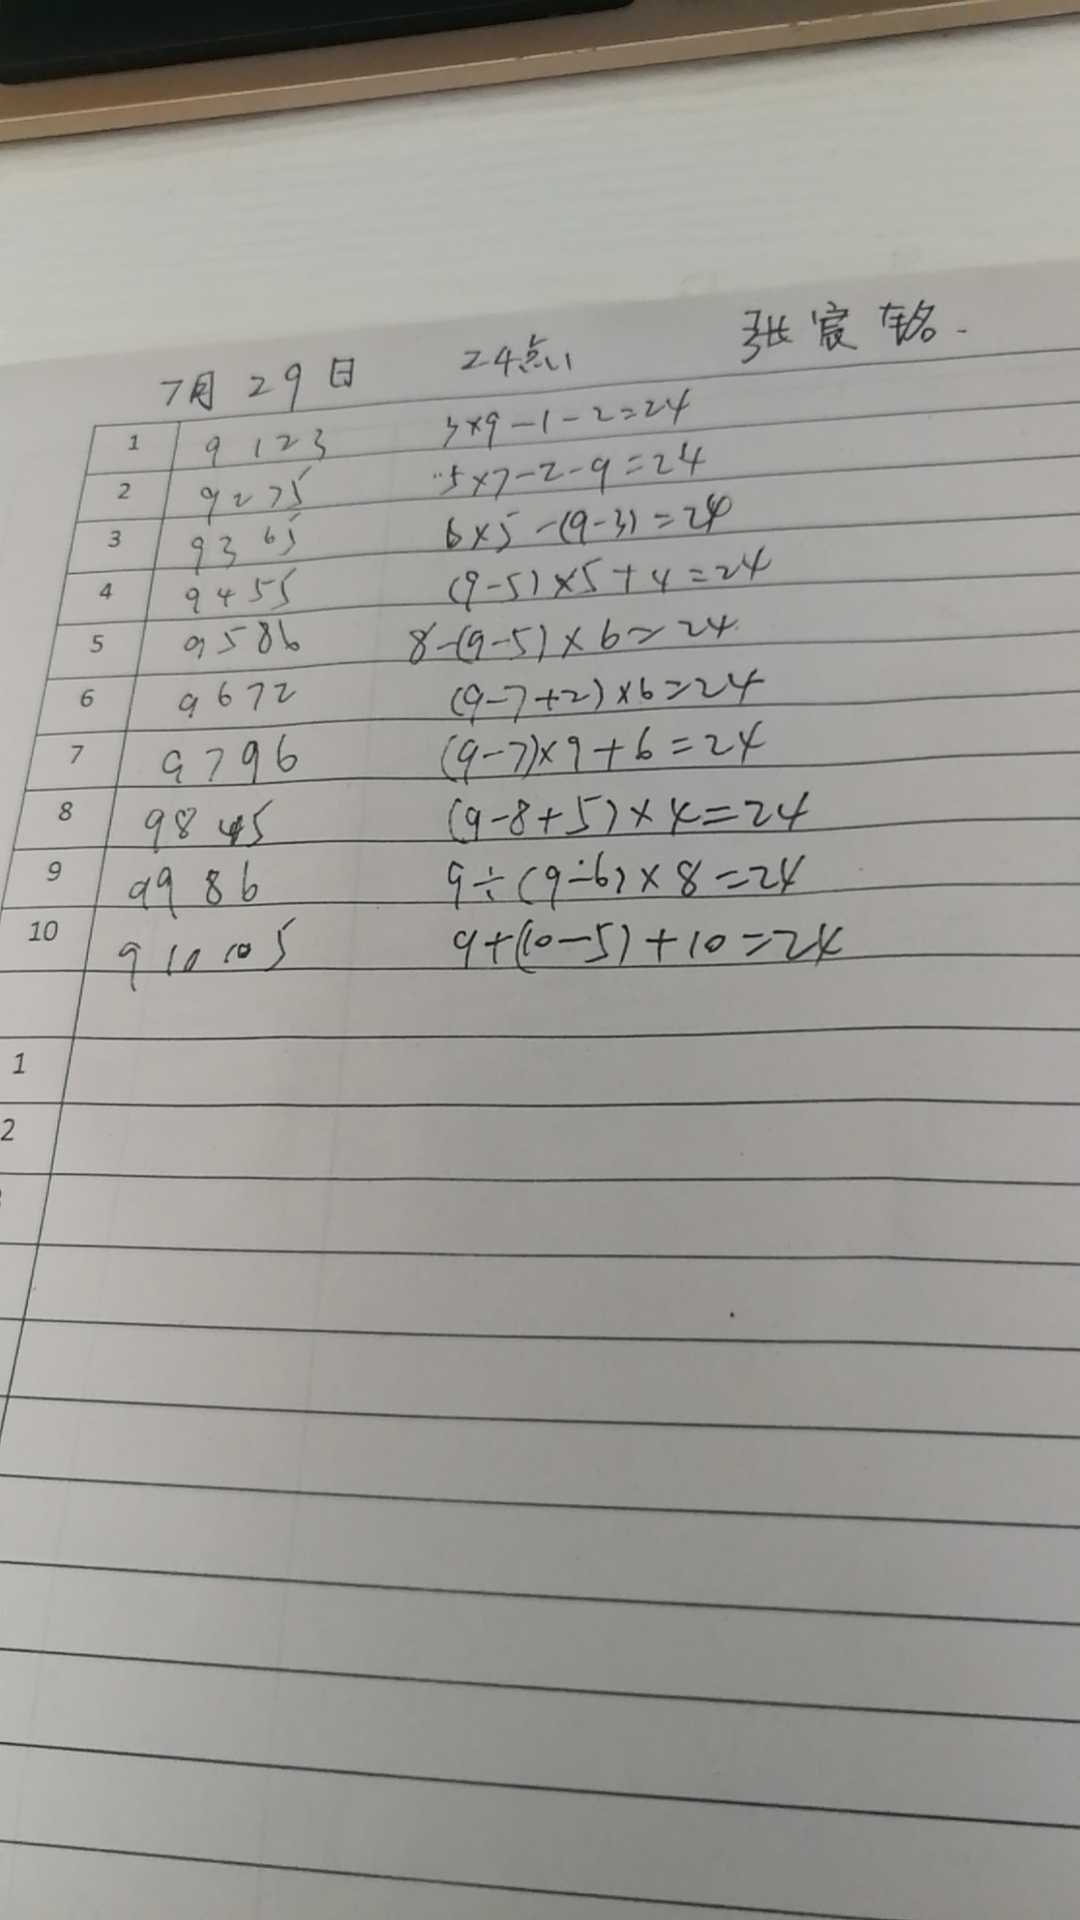 7月29日 24点 张宸铭.
1 9 1 2 3 3×9-1-2=24
2 9 2 7 5 5×7-2-9=24
3 9 3 6 5 6×5-(9-3)=24
4 9 4 5 5 (9-5)×5+4=24
5 9 5 8 6 8-(9-5)×6=24
6 9 6 7 2 (9-7+2)×6=24
7 9 7 9 6 (9-7)×9+6=24
8 9 8 4 5 (9-8+5)×4=24
9 9 9 8 6 9÷(9-6)×8=24
10 9 10 10 5 9+(10-5)+10=24
1
2